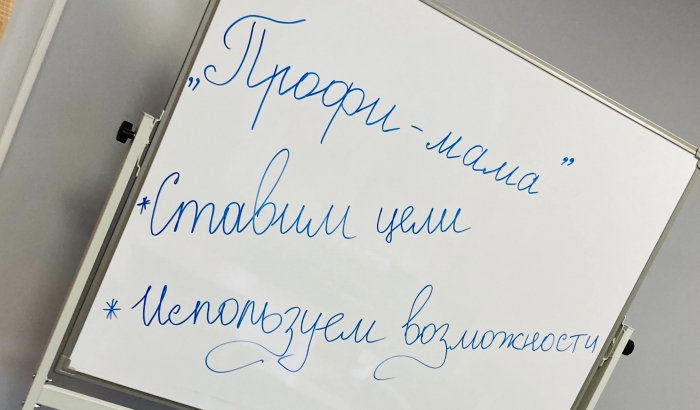 „Профи-мама”
*Ставим цели
*Используем возможности